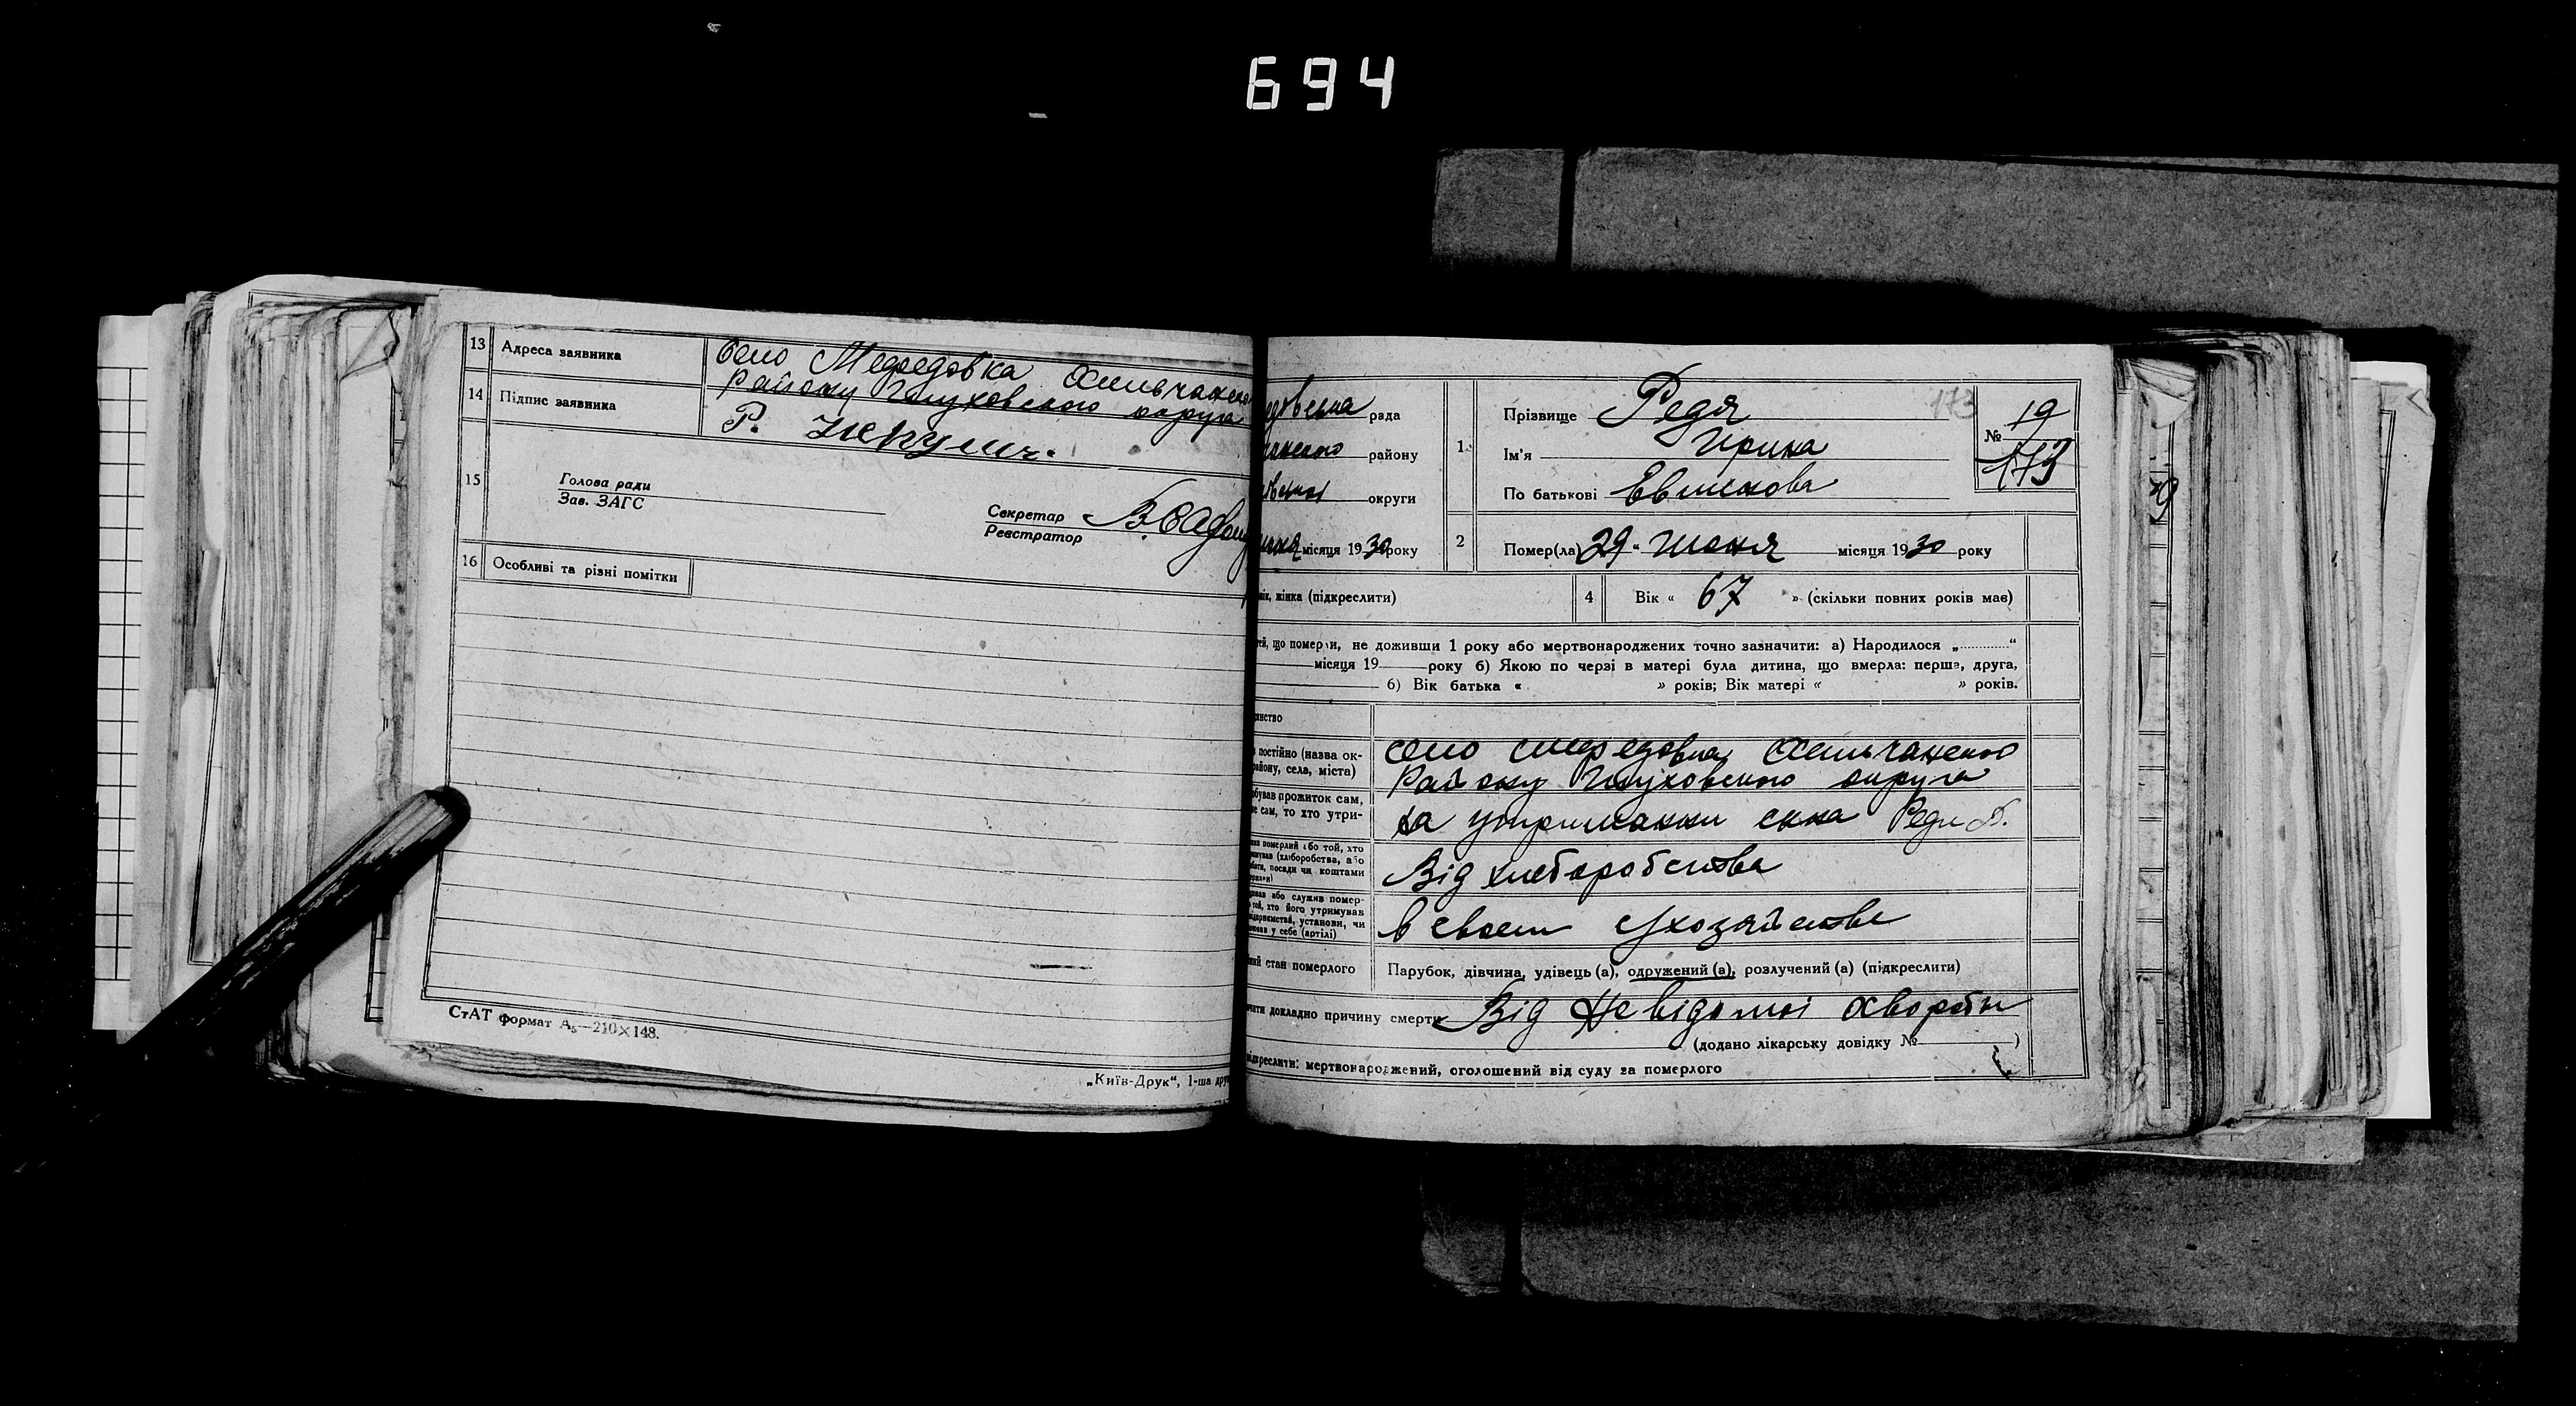 694
13 Адреса заявника
село Медведовка Хильчанско
Району Глуховского округа
14 Підпис заявника
Р.
15
Голова ради
Зав. ЗАГС
Секретар
Реєстратор
16 Особливі та різні помітки
СтАТ формат А₅—210×148.
„Київ-Друк“, 1-ша дру
рада
району
округи
місяця 1930 року
1 Прізвище Редя
173
Ім'я Ирина
По батькові
№ 19
173
2 Помер(ла) 29 “ июня місяця 1930 року
жінка (підкреслити)
4 Вік « 67 » (скільки повних років має)
що померли, не доживши 1 року або мертвонароджених точно зазначити: а) Народилося „ “
місяця 19 року б) Якою по черзі в матері була дитина, що вмерла: перша, друга,
б) Вік батька « » років; Вік матері « » років.
постійно (назва ок-
району, села, міста)
село Хильчанского
Району Глуховского округа
прожиток сам,
сам, то хто утри-
на утриманни сина Реди
померлий або той, хто
(хліборобства, або
посади чи коштами
Від хлеборобства
або служив помер-
той, хто його утримував
установи, чи
у себе (артілі)
в своем хозяйстве
стан померлого
Парубок, дівчина, удівець (а), одружений (а), розлучений (а) (підкреслити)
докладно причину смерти Від Невідомоі хвороби
(додано лікарську довідку № )
мертвонароджений, оголошений від суду за померлого